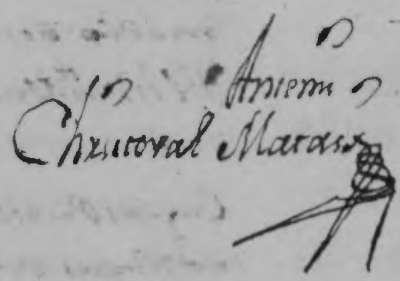 Antemi
Chriſtoval Matais